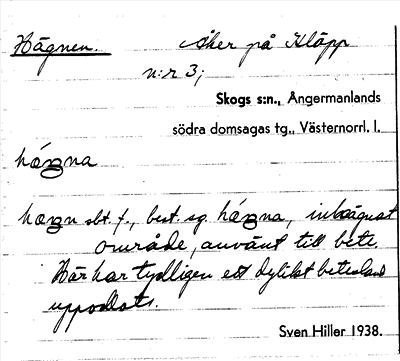 Hägnen. Åker på Kläpp
n:r 3;
Skogs s:n., Ångermanlands
södra domsagas tg., Västernorrl. l.
hä́ŋna
hæŋn sbt. f., best. sg. hä́ŋna, inhägnat
område, använt till bete.
Här har tydligen ett dylikt beteland
uppodlats.
Sven Hiller 1938.